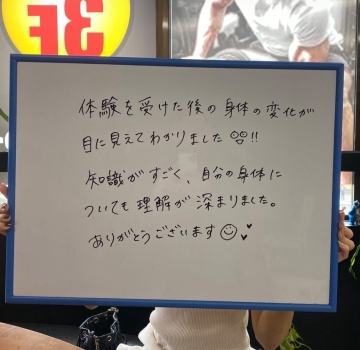 3F
体験を受けた後の身体の変化が
目に見えてわかりました!!
知識がすごく、自分の身体に
ついても理解が深まりました。
ありがとうございます